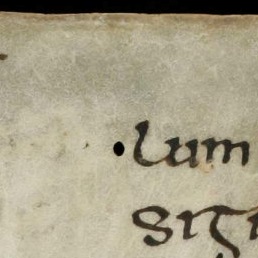 lum
sig